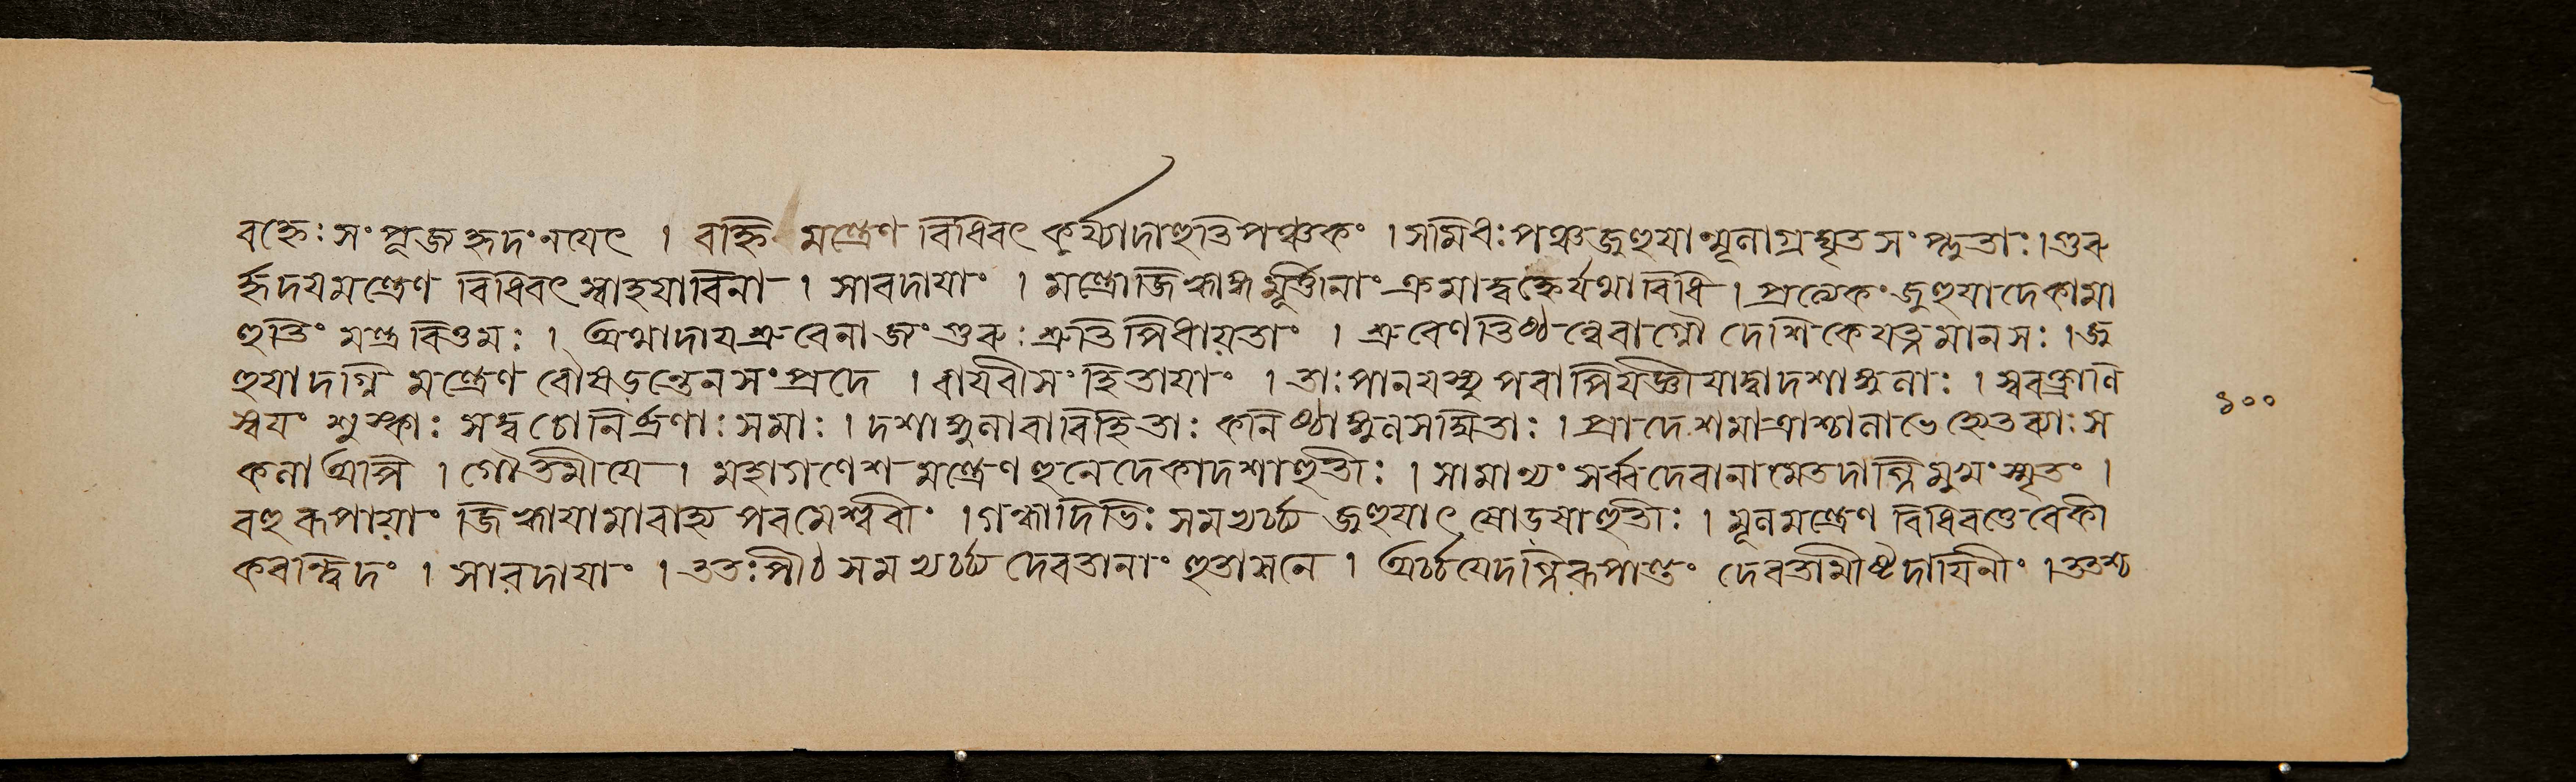 বহ্নেঃ সংপূজ্য হৃদংনয়েৎ । বহ্নি মন্ত্রেণ বিধিবৎ কুর্য্যাদাহুতিপঞ্চকং । সমিধঃ পঞ্চজুহুয়ান্মূলাগ্রঘৃতসংপ্লুতাঃ । গুরু
র্হৃদয়মন্ত্রেণ বিধিবৎ স্বাহয়াবিনা । সারদায়াং । মন্ত্রোজিহ্বাঙ্গমূর্ত্তীনাং ক্রমাদ্বহ্নের্যথাবিধি । প্রত্যেকং জুহুয়াদেকামা
হুতিং মন্ত্রবিত্তমঃ । অথাদায় শ্রুবেনাজ্যং গুরুঃ শ্রুচি পিধায়তাং । শ্রুবেণ তিষ্ঠন্বেবাগ্নৌ দেশিকেযতমানসঃ । জু
হুয়াদগ্নি মন্ত্রেণ বৌষড়ন্তেন সংপ্রদে । বায়বীসংহিতায়াং । তাঃ পালয়স্যুপরাপির্যজ্ঞীয়াদ্বাদশাঙ্গুলাঃ । স্ববক্রানি
স্বয়ং শুষ্কাঃ সত্বচোনির্ব্রণাঃ সমাঃ । দশাঙ্গুলাবাবিহিতাঃ কনিষ্ঠাঙ্গুলসম্মিতাঃ । প্রাদেশমাত্রাশ্চালাভে হোতব্যাঃ স
কলা অপি । গৌতমীয়ে । মহাগণেশমন্ত্রেণ হুনেদেকাদশাহুতীঃ । সামান্যং সর্ব্বদেবানামেতদগ্নিমুখংস্মৃতং ।
বহুরূপায়াং জিহ্বায়ামাবাহ্য পরমেশ্বরীং । গন্ধাদিভিঃ সমভ্যর্চ্চ্য জুহুয়াৎ ষোড়ষাহুতীঃ । মূলমন্ত্রেণ বিধিবত্তেবেকী
করন্ত্বিদং । সারদায়াং । ততঃপীঠ সমভ্যর্চ্চ্য দেবতানাং হুতাসনে । অর্চ্চয়েদগ্নিরূপান্তং দেবতামীষ্টদায়িনীং । ততশ্চ
১০০